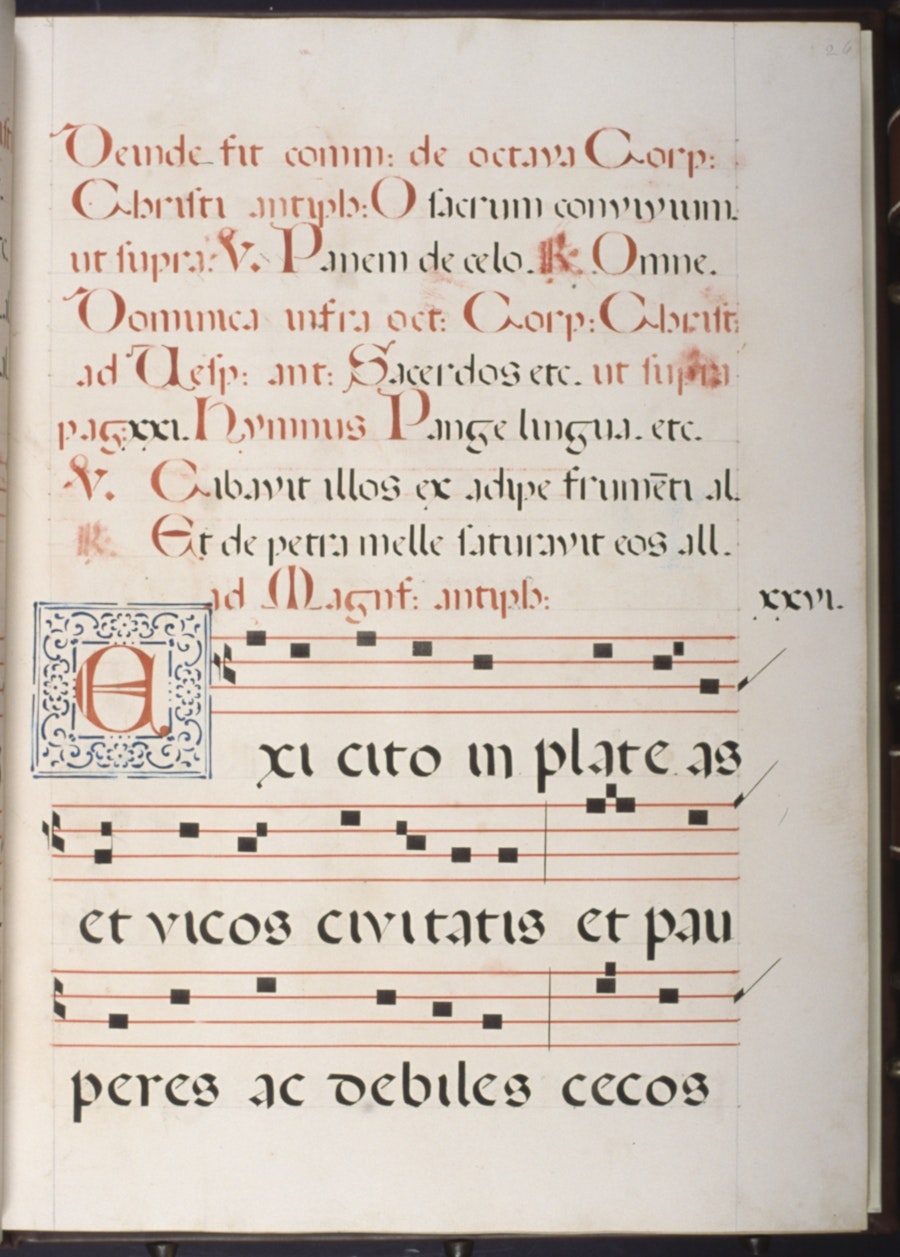 26
Deinde fit comm: de octava Corp:
Christi antiph: O sacrum convivium.
ut supra: V. Panem de celo. R. Omne.
Dominica infra oct: Corp: Christi
ad Vesp: ant: Sacerdos etc. ut supra
pag: xxi. Hymnus Pange lingua. etc.
V. Cibavit illos ex adipe frumēti al.
R. Et de petra melle saturavit eos all.
ad Magnf: antiph:
xxvi.
Exi cito in plate as
et vicos civitatis et pau
peres ac debiles cecos